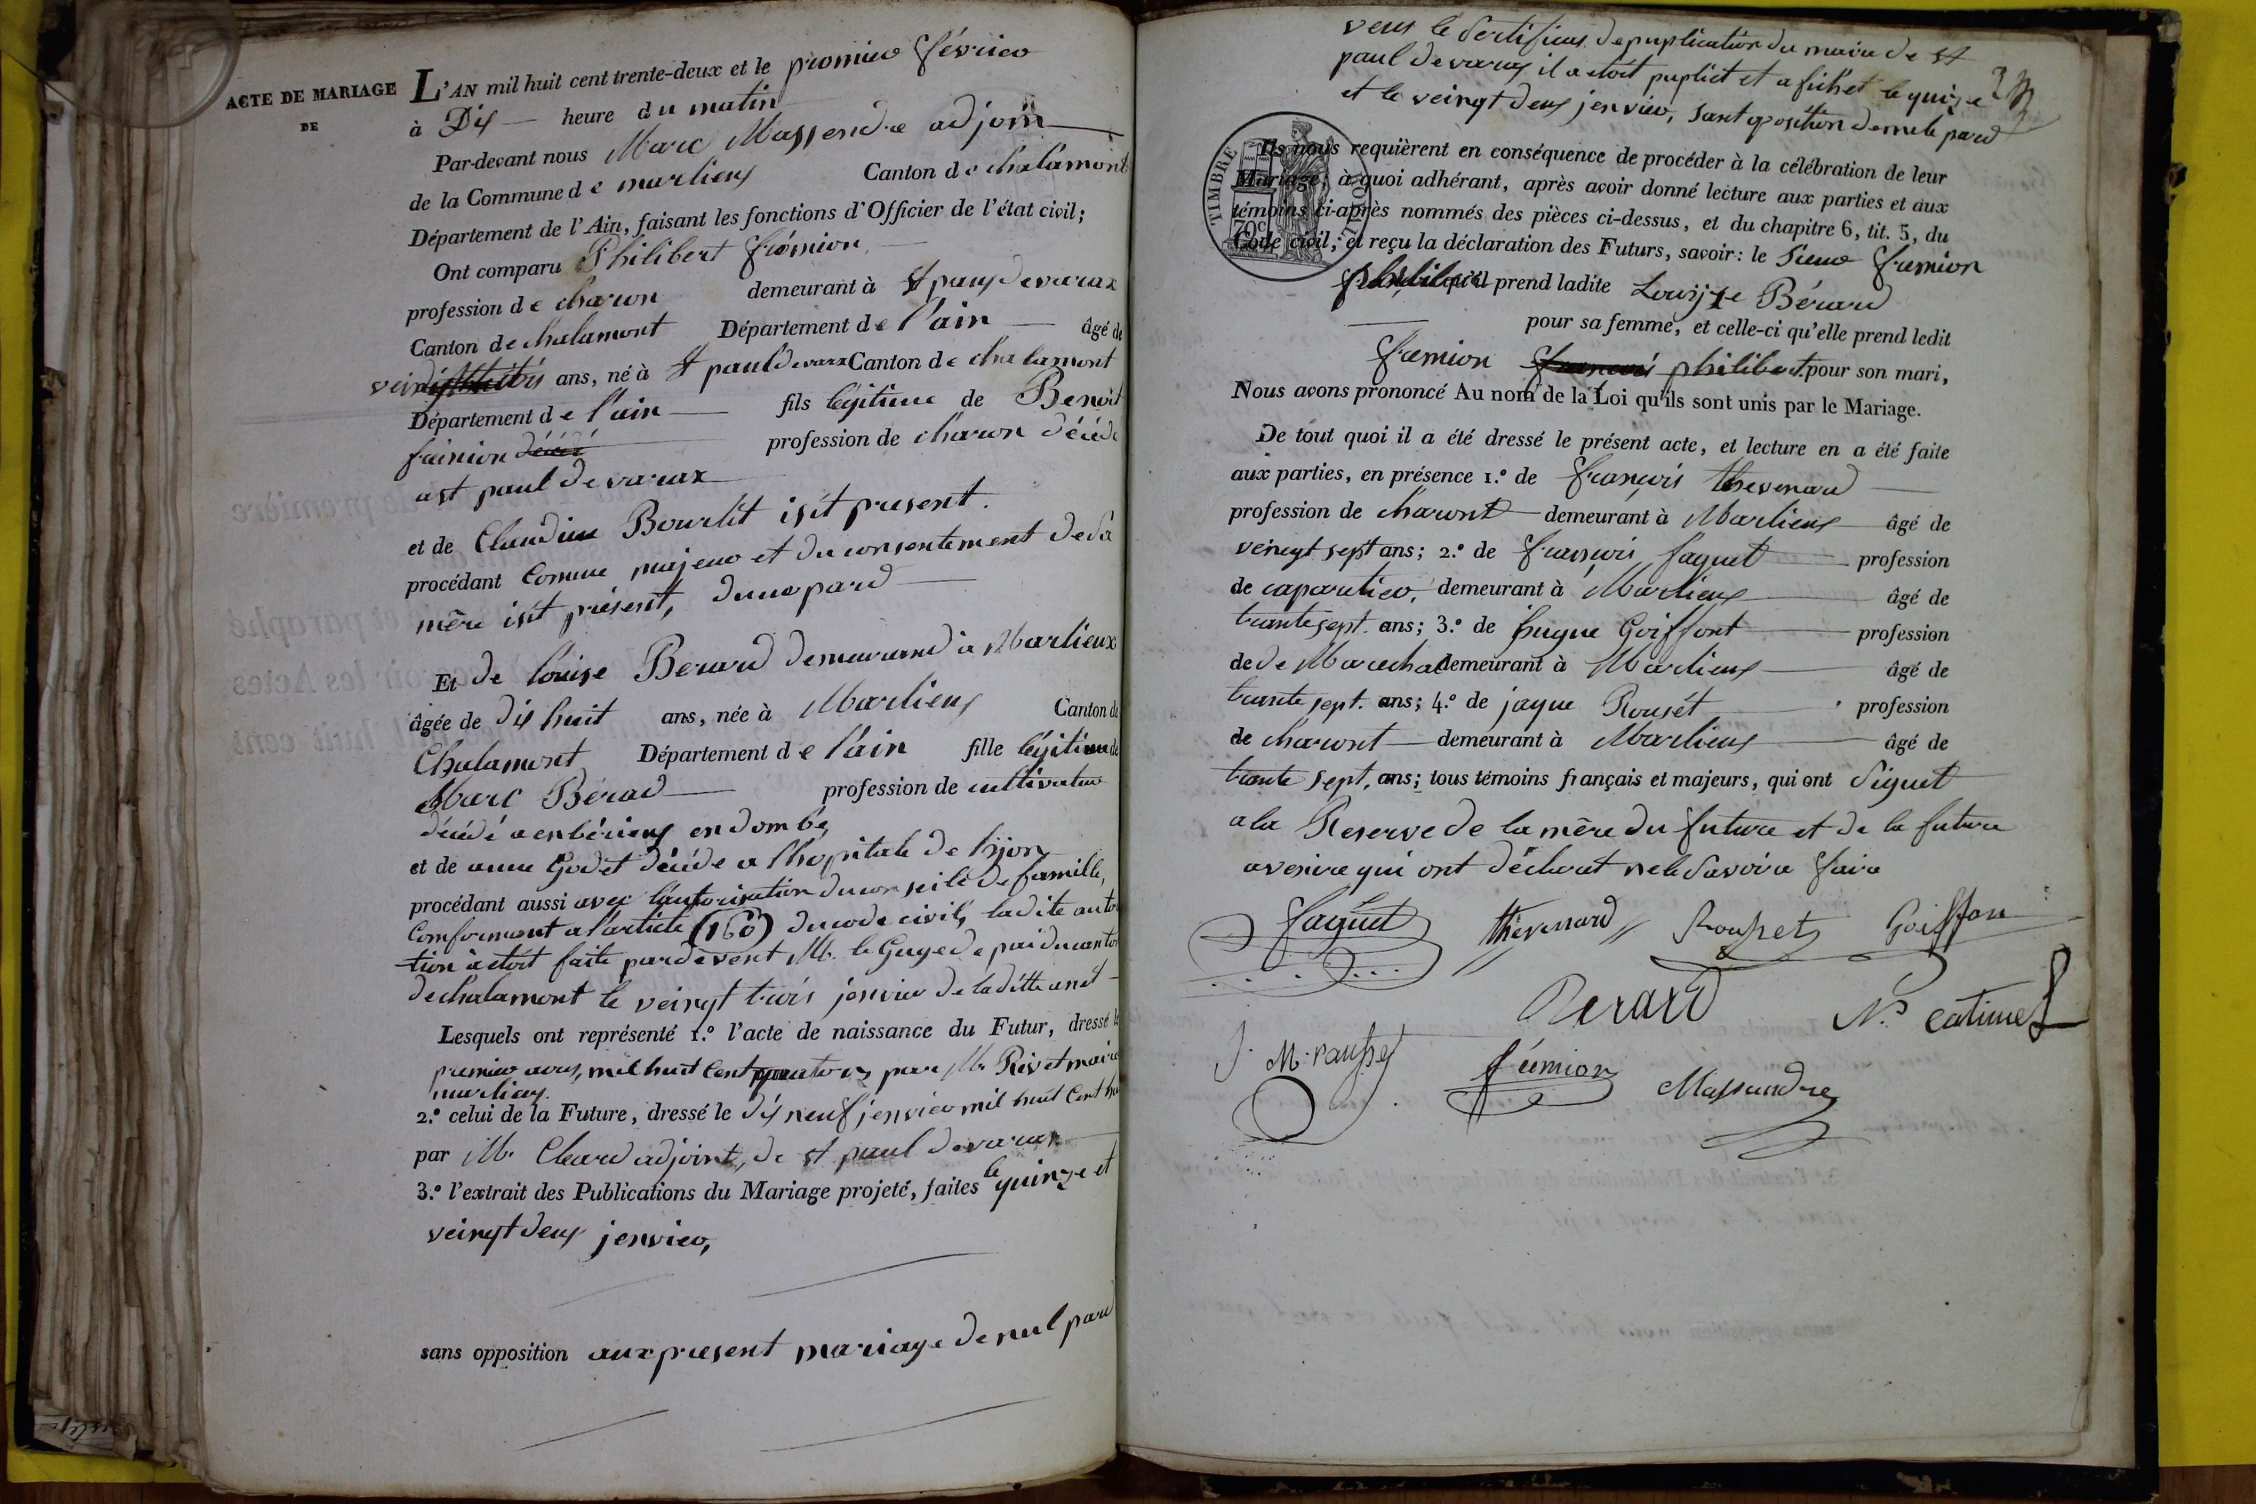 ACTE DE MARIAGE
DE
L'AN mil huit cent trente-deux et le promier février
à Dix heure du matin
Par-devant nous Marc Massendre adjoin
de la Commune de marlieux Canton de chalamont
Département de l'Ain, faisant les fonctions d'Officier de l'état civil;
Ont comparu Philibert frémion
profession de charon demeurant à st paul de varax
Canton de chalamont Département de l'ain âgé de
ans, né à st paul de varax Canton de chalamont
Département de l'ain fils légitime de Benoit
frimion décédé profession de charon décéde
a st paul de varax
et de Claudine Bourlit isit present.
procédant comme majeur et du consentement de sa
mère isit présent, dune pard
Et de louise Berard demeurand à Marlieux
âgée de dix huit ans, née à Marlieux Canton de
Chalamont Département de l'ain fille légitime de
Marc Bérad profession de cultivateur
décédé a enbérieux en dombe,
et de anne Godet décéde a lhopitale de lyon
procédant aussi avec l'autorisation du conseile de famille,
Conforment a l'article (160) du code civil, ladite auto
tion à étoit faite pardevent Mr. le Guge de pai du canton
de chalamont le veingt trois jenvier de laditte anet
Lesquels ont représenté 1.º l'acte de naissance du Futur, dressé le
premier aous, mil huit Cent quatorz par Mr Rivet maire
marlieux.
2.º celui de la Future, dressé le dix neuf jenvier mil huit Cent
par Mr. Clard adjoint, de st paul de varax
3.º l'extrait des Publications du Mariage projeté, faites le quinze et
veingt deux jenvier,
sans opposition aux present mariage de nul pard
veus le Sertificat de puplication du maire de st
paul de varax il a etoit puplict et afichet le quinze
et le veingt deux jenvier, sant oposition de nule pard
TIMBRE ROYAL
70c
Ils nous requièrent en conséquence de procéder à la célébration de leur
Mariage; à quoi adhérant, après avoir donné lecture aux parties et aux
témoins ci-après nommés des pièces ci-dessus, et du chapitre 6, tit. 5, du
Code civil; et reçu la déclaration des Futurs, savoir: le Sieur fremion
philibert qu'il prend ladite Louise Bérard
pour sa femme, et celle-ci qu'elle prend ledit
fremion francois philibert pour son mari,
Nous avons prononcé Au nom de la Loi qu'ils sont unis par le Mariage.
De tout quoi il a été dressé le présent acte, et lecture en a été faite
aux parties, en présence 1.º de françois thevenard
profession de charont demeurant à Marlieux âgé de
veingt sept ans; 2.º de françois faguet profession
de caparatier, demeurant à Marlieux âgé de
trante sept. ans; 3.º de hugue Goiffont profession
de de Marechal demeurant à Marlieux âgé de
trante sept. ans; 4.º de jaque Rousét profession
de charont demeurant à Marlieux âgé de
trante sept, ans; tous témoins français et majeurs, qui ont Signet
a la Reserve de la mère du future et de la future
avenire qui ont déclarat ne le Savoire faire
faguet thevenard Rousset Goiffon
Berard N. catimel
J. M. rousset frémion Massandre